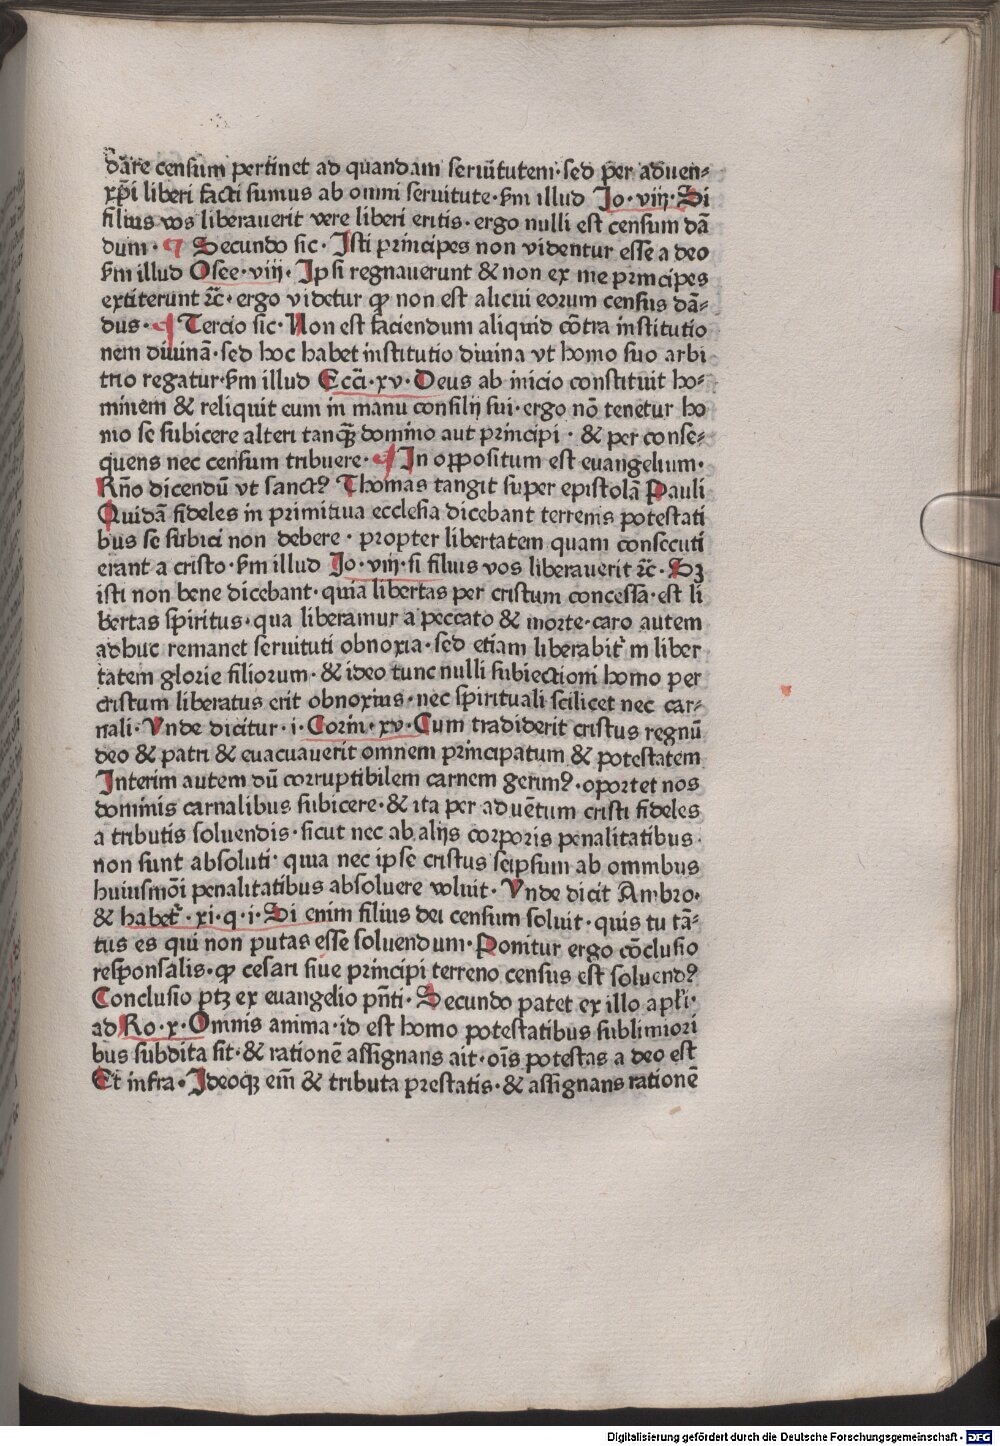 dare censum pertinet ad quandam seruitutem·sed per aduen-
xp̄i liberi facti sumus ab omni seruitute·ẜm illud Jo·viij·Si
filius vos liberauerit vere liberi eritis·ergo nulli est censum dā
dum·¶ Secundo sic·Isti principes non videntur esse a deo
ẜm illud Osee·viij·Ipsi regnauerunt & non ex me principes
extiterunt ⁊c̄·ergo videtur ꝙ non est alicui eorum census dā-
dus·¶ Tercio sic·Non est faciendum aliquid cōtra institutio
nem diuinā·sed hoc habet institutio diuina vt homo suo arbi
trio regatur·ẜm illud Ecc̄i·xv·Deus ab inicio constituit ho-
minem & reliquit eum in manu consilij sui·ergo nō tenetur ho
mo se subicere alteri tanqꝫ domino aut principi·& per conse-
quens nec censum tribuere·¶ In oppositum est euangelium·
Rn̄o dicendū vt sanctꝰ Thomas tangit super epistolā Pauli
Quidā fideles in primitiua ecclesia dicebant terrenis potestati
bus se subici non debere·propter libertatem quam consecuti
erant a cristo·ẜm illud Jo·viij·si filius vos liberauerit ⁊c̄·Sꝫ
isti non bene dicebant·quia libertas per cristum concessa·est li
bertas spiritus·qua liberamur a peccato & morte·caro autem
adhuc remanet seruituti obnoxia·sed etiam liberabit᷑ in liber
tatem glorie filiorum·& ideo tunc nulli subiectioni homo per
cristum liberatus erit obnoxius·nec spirituali scilicet nec car-
nali·Vnde dicitur·i·Corin̄·xv·Cum tradiderit cristus regnū
deo & patri & euacuauerit omnem principatum & potestatem
Interim autem dū corruptibilem carnem gerimꝰ·oportet nos
dominis carnalibus subicere·& ita per aduētum cristi fideles
a tributis soluendis·sicut nec ab alijs corporis penalitatibus·
non sunt absoluti·quia nec ipse cristus seipsum ab omnibus
huiusmōi penalitatibus absoluere voluit·Vnde dicit Ambro·
& habet᷑·xi·q·i·Si enim filius dei censum soluit·quis tu tā-
tus es qui non putas esse soluendum·Ponitur ergo cōclusio
responsalis·ꝙ cesari siue principi terreno census est soluendꝰ
Conclusio ptꝫ ex euangelio pn̄ti·Secundo patet ex illo apl̄i·
ad Ro·x·Omnis anima·id est homo potestatibus sublimiori
bus subdita sit·& rationē assignans ait·oīs potestas a deo est
Et infra·Ideoqꝫ em̄ & tributa prestatis·& assignans rationē
Digitalisierung gefördert durch die Deutsche Forschungsgemeinschaft - DFG